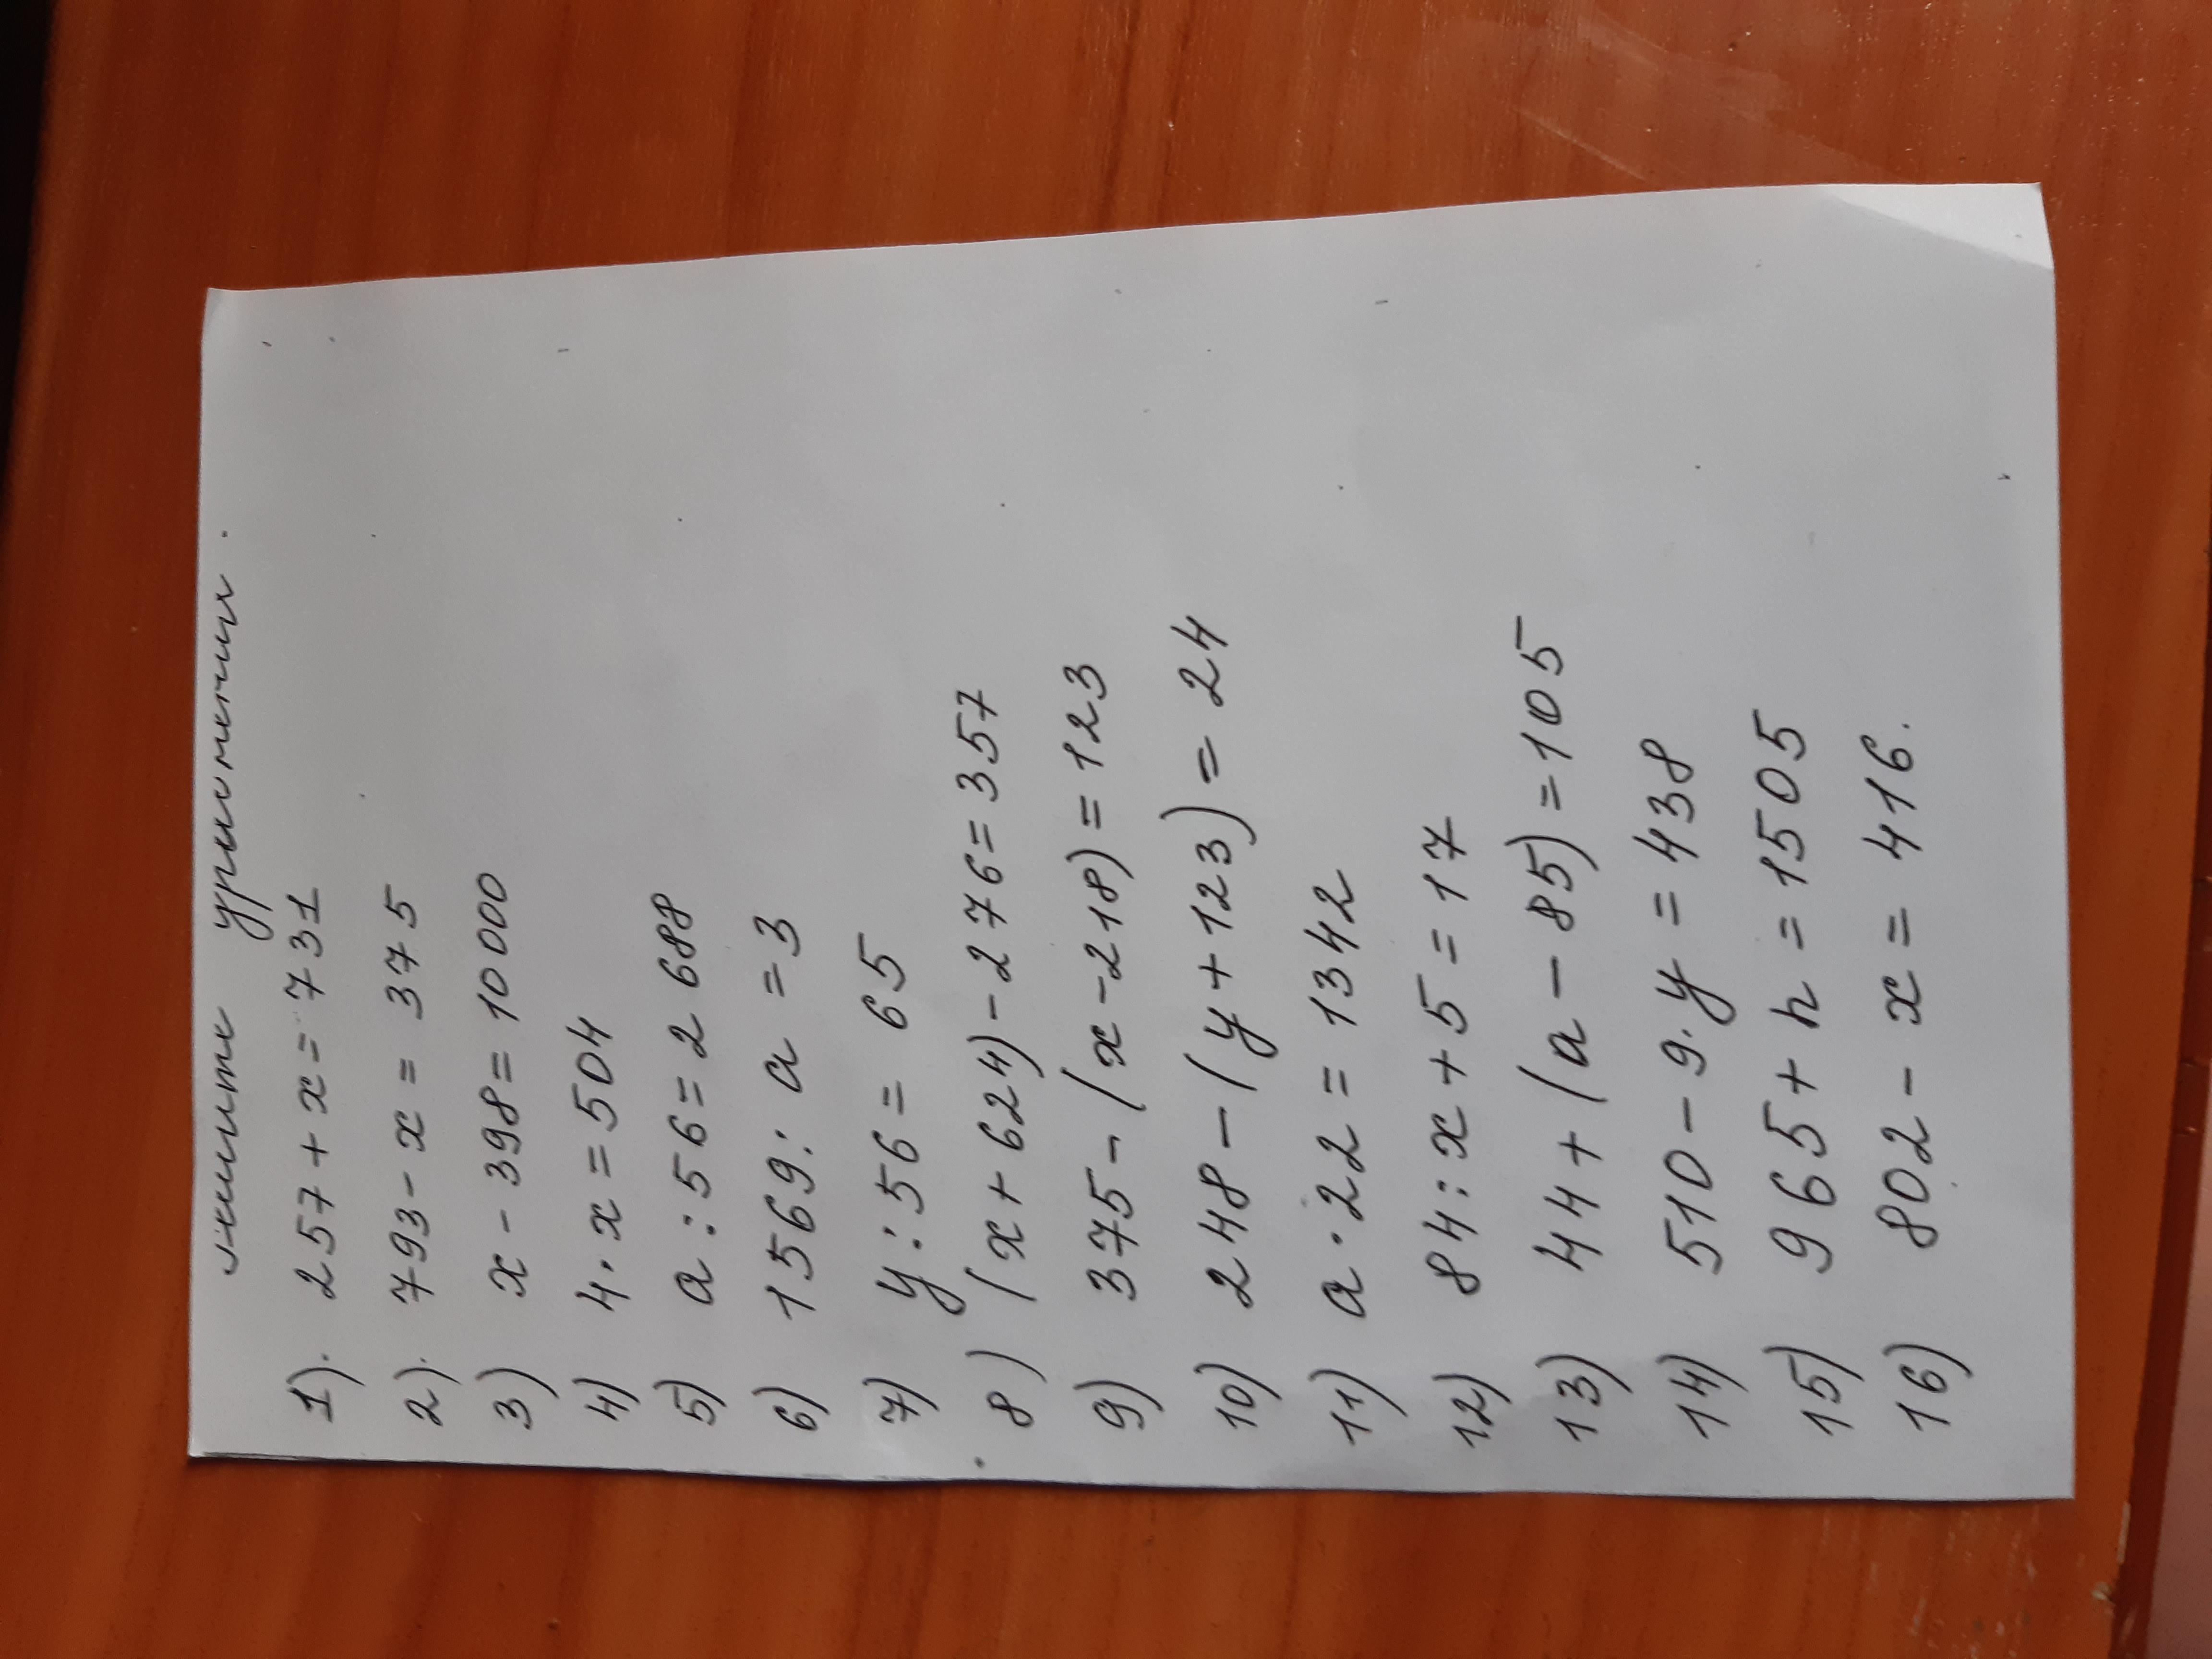 уравнения.
1). 257 + x = 731
2). 793 - x = 375
3) x - 398 = 10 000
4) 4 · x = 504
5) a : 56 = 2 688
6) 1569 : a = 3
7) y : 56 = 65
8) (x + 624) - 276 = 357
9) 375 - (x - 218) = 123
10) 248 - (y + 123) = 24
11) a · 22 = 1342
12) 84 : x + 5 = 17
13) 44 + (a - 85) = 105
14) 510 - 9 · y = 438
15) 965 + n = 1505
16) 802 - x = 416.